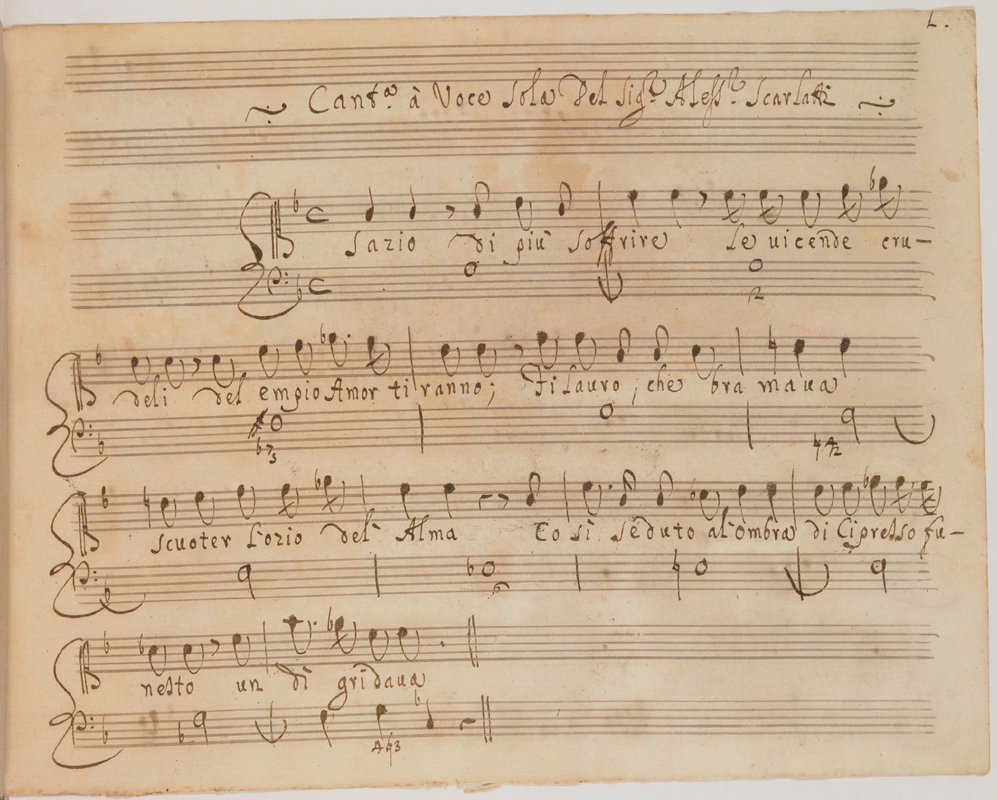 L.
Cant.ª à Voce sola Del Sig.r Aless.o Scarlatti
Sazio di più soffrire le uicende cru-
12
deli del empio Amor tiranno; Fileuro, che bramaua
b7 5 4 2
scuoter l'ozio del' Alma Così seduto al'ombra di Cipresso fu-
6
nesto un dì gridaua
4 3